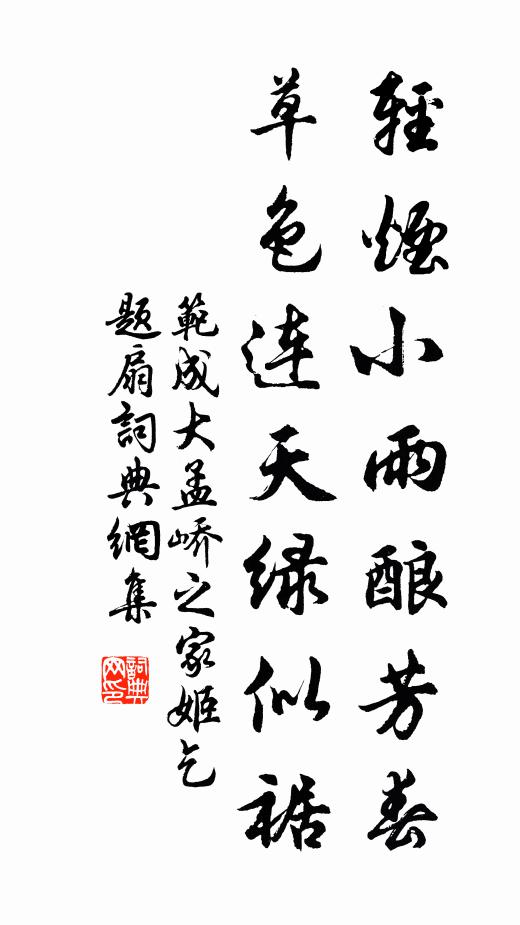 輕煙小雨酿芳春
草色連天绿似裾
範成大孟嶠之家姬乞
题扇詞典網集
詞典网印